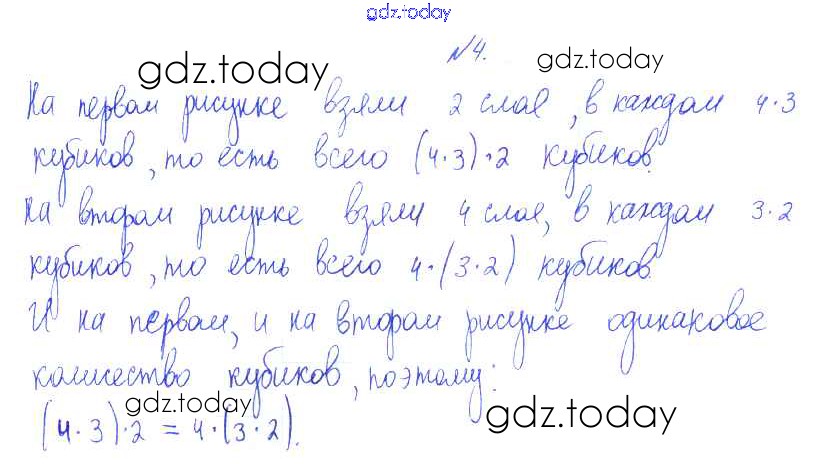 gdz.today
№4.
gdz.today gdz.today
На первом рисунке взяли 2 слоя, в каждом 4·3
кубиков, то есть всего (4·3)·2 кубиков.
На втором рисунке взяли 4 слоя, в каждом 3·2
кубиков, то есть всего 4·(3·2) кубиков.
И на первом, и на втором рисунке одинаковое
количество кубиков, поэтому:
gdz.today gdz.today
(4·3)·2 = 4·(3·2).